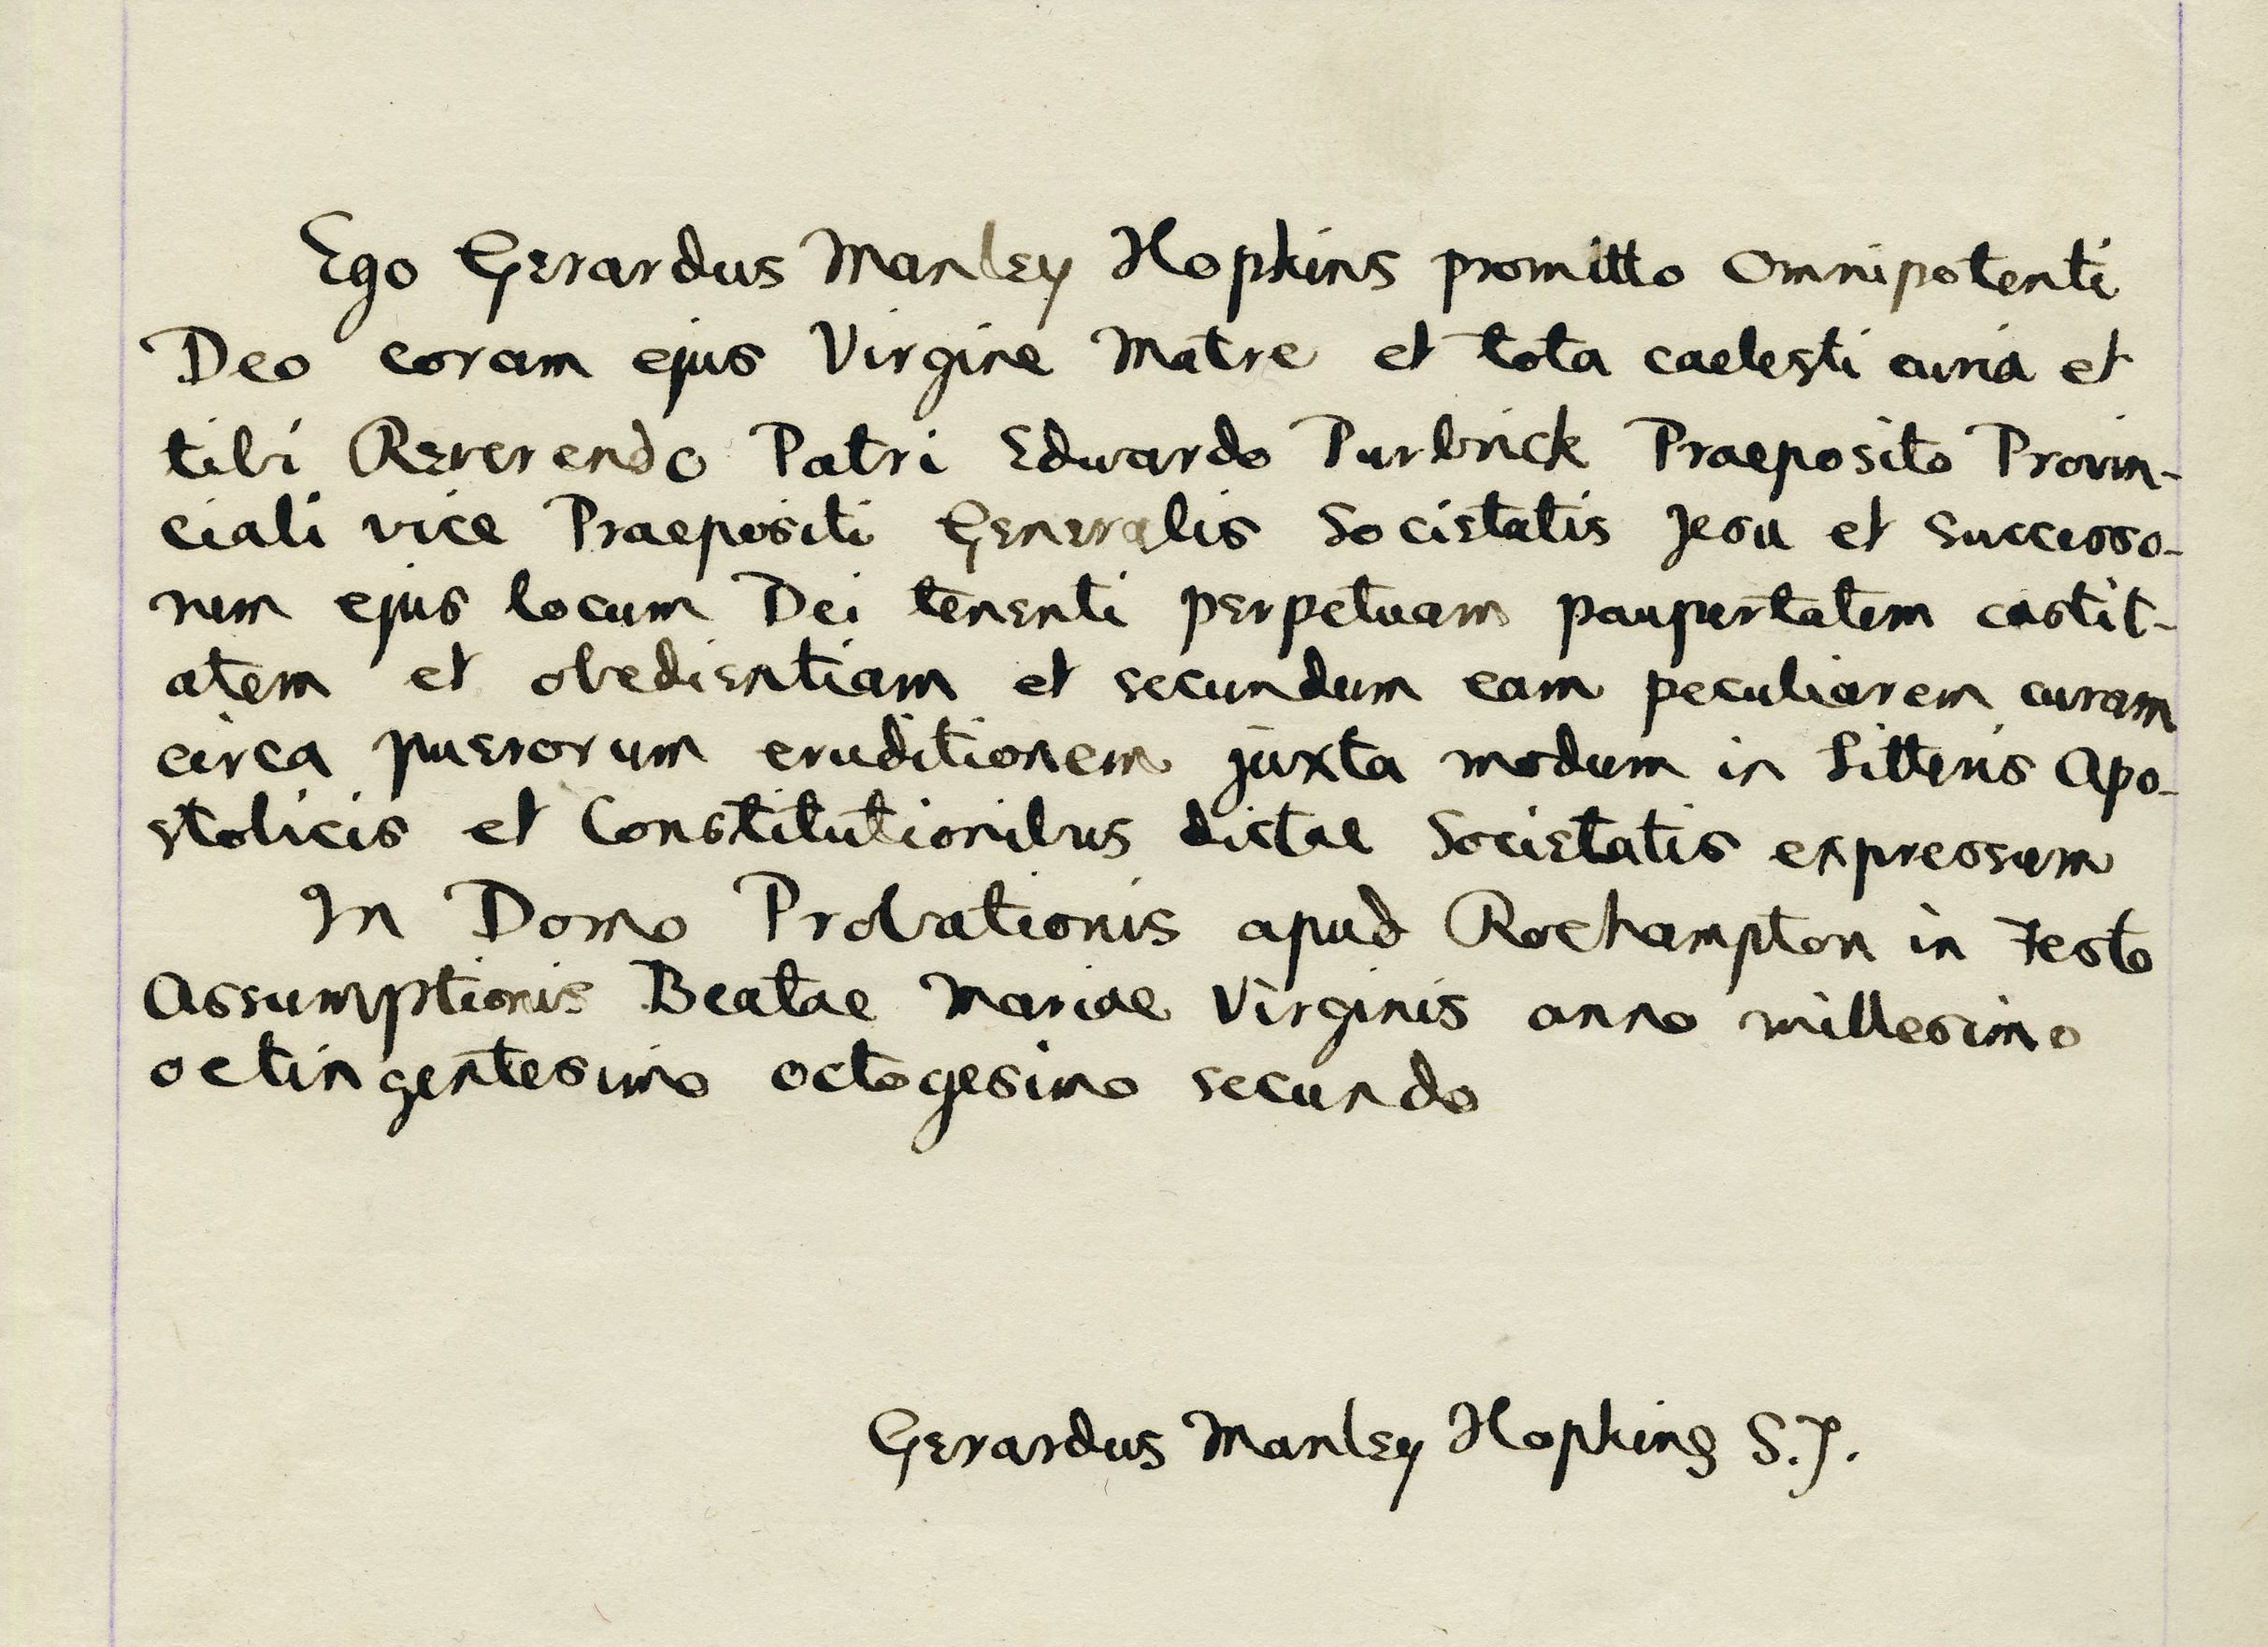 Ego Gerardus Manley Hopkins promitto Omnipotenti
Deo coram ejus Virgine Matre et tota caelesti curia et
tibi Reverendo Patri Eduardo Purbrick Praeposito Provin-
ciali vice Praepositi Generalis Societatis Jesu et successo-
rum ejus locum Dei tenenti perpetuam paupertatem castit-
atem et obedientiam et secundum eam peculiarem curam
circa puerorum eruditionem juxta modum in Litteris Apo-
stolicis et Constitutionibus dictae Societatis expressum
In Domo Probationis apud Roehampton in Festo
Assumptionis Beatae Mariae Virginis anno millesimo
octingentesimo octogesimo secundo
Gerardus Manley Hopkins S.J.